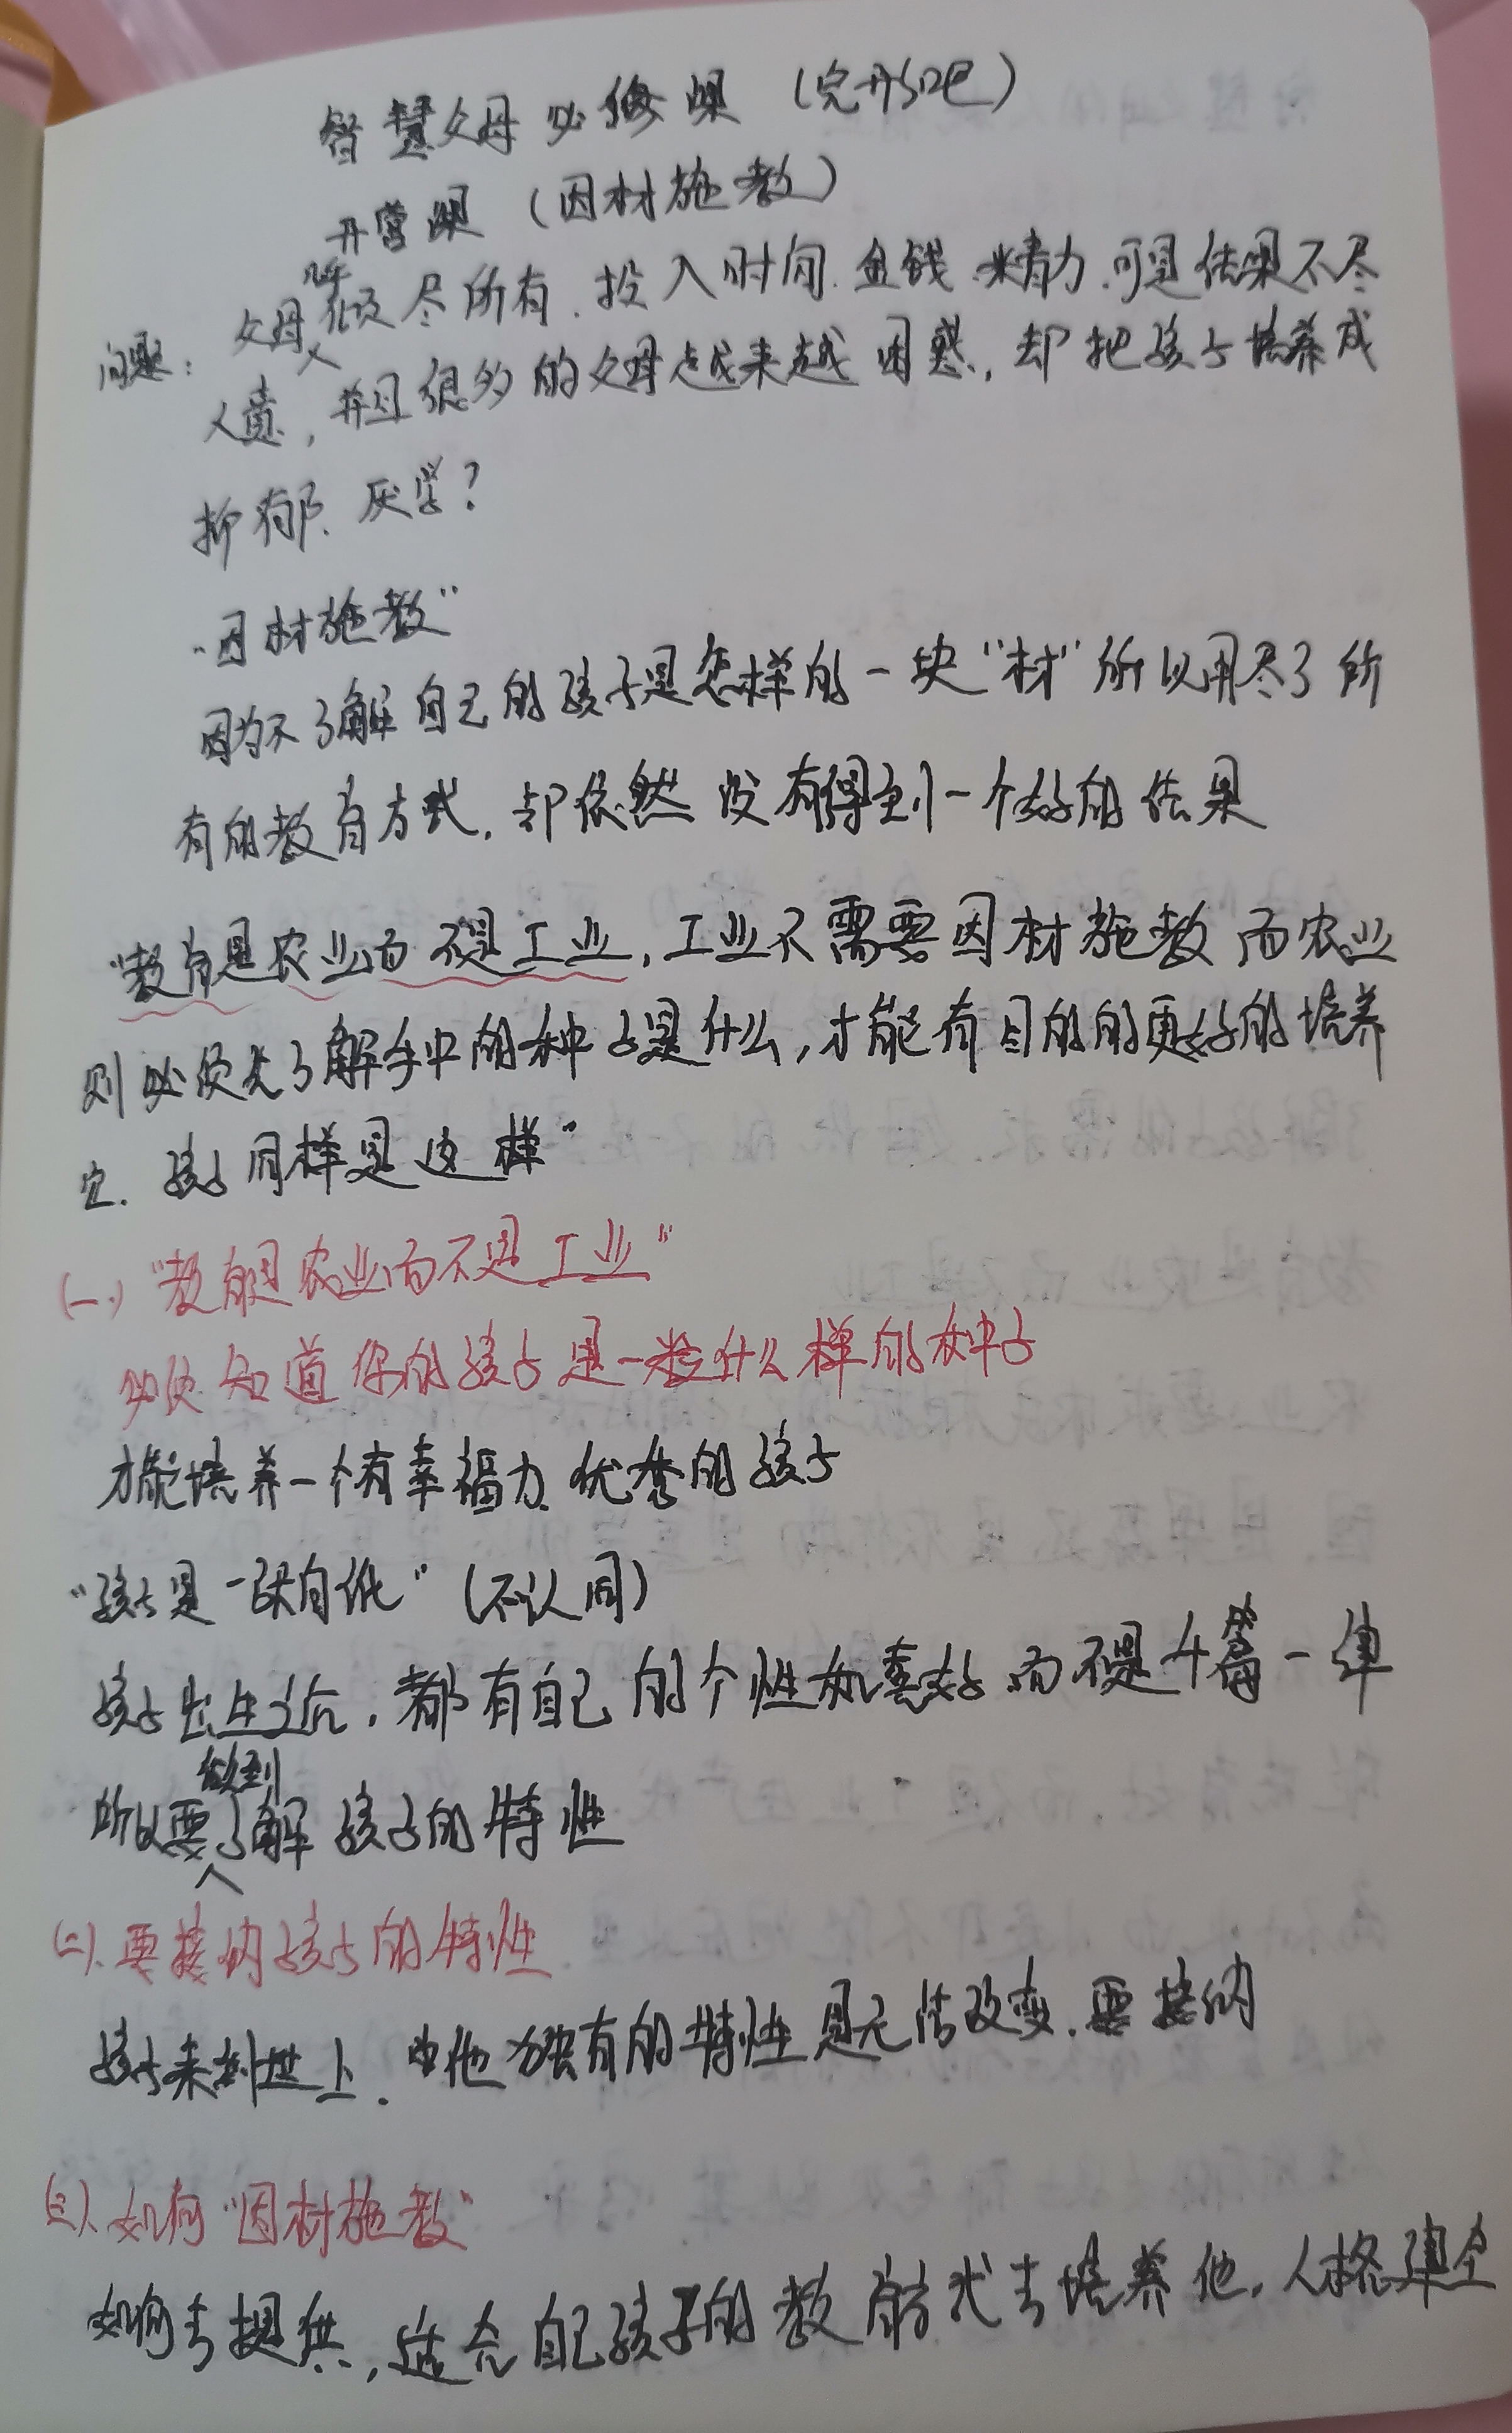 智慧父母必修课（完形吧）
开营课（因材施教）
问题：父母几乎倾尽所有．投入时间．金钱．精力．可是结果不尽
人意，并且很多的父母越来越困惑，却把孩子培养成
抑郁．厌学？
“因材施教”
因为不了解自己的孩子是怎样的一块“材”所以用尽了所
有的教育方式，却依然没有得到一个好的结果
“教育是农业而不是工业，工业不需要因材施教而农业
则必须先了解手中的种子是什么，才能有目的的更好的培养
它．孩子同样是这样”
(一)“教育是农业而不是工业”
必须知道你的孩子是一粒什么样的种子
才能培养一个有幸福力．优秀的孩子
“孩子是一张白纸”（不认同）
孩子出生之后，都有自己的个性和喜好而不是千篇一律
所以要做到了解孩子的特性
(二)．要接纳孩子的特性．
孩子来到世上．他独有的特性是无法改变．要接纳
(三)．如何“因材施教”
如何去提供，适合自己孩子的教育方式去培养他，人格建全